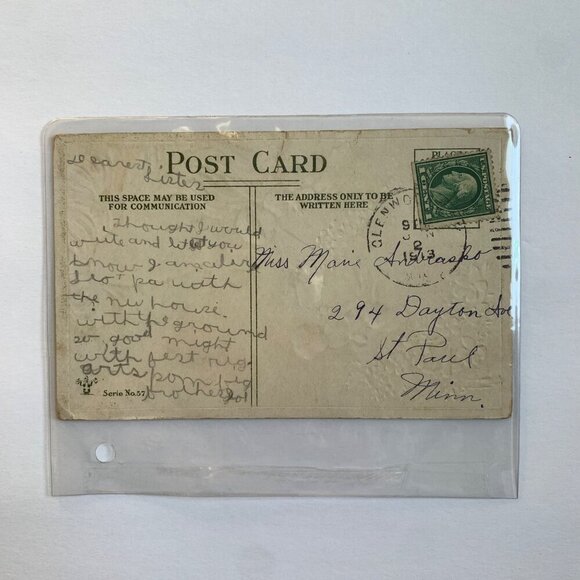 Dearest
Sister
POST CARD
THIS SPACE MAY BE USED
FOR COMMUNICATION
THE ADDRESS ONLY TO BE
WRITTEN HERE
PLACE
GLENWO
2
1913
Thought I would
write and let you
know I am
pa with
the nu house
with the ground
so good might
with best
from
brother
Miss Marie
294 Dayton Ave
St Paul
Minn.
Serie No. 57